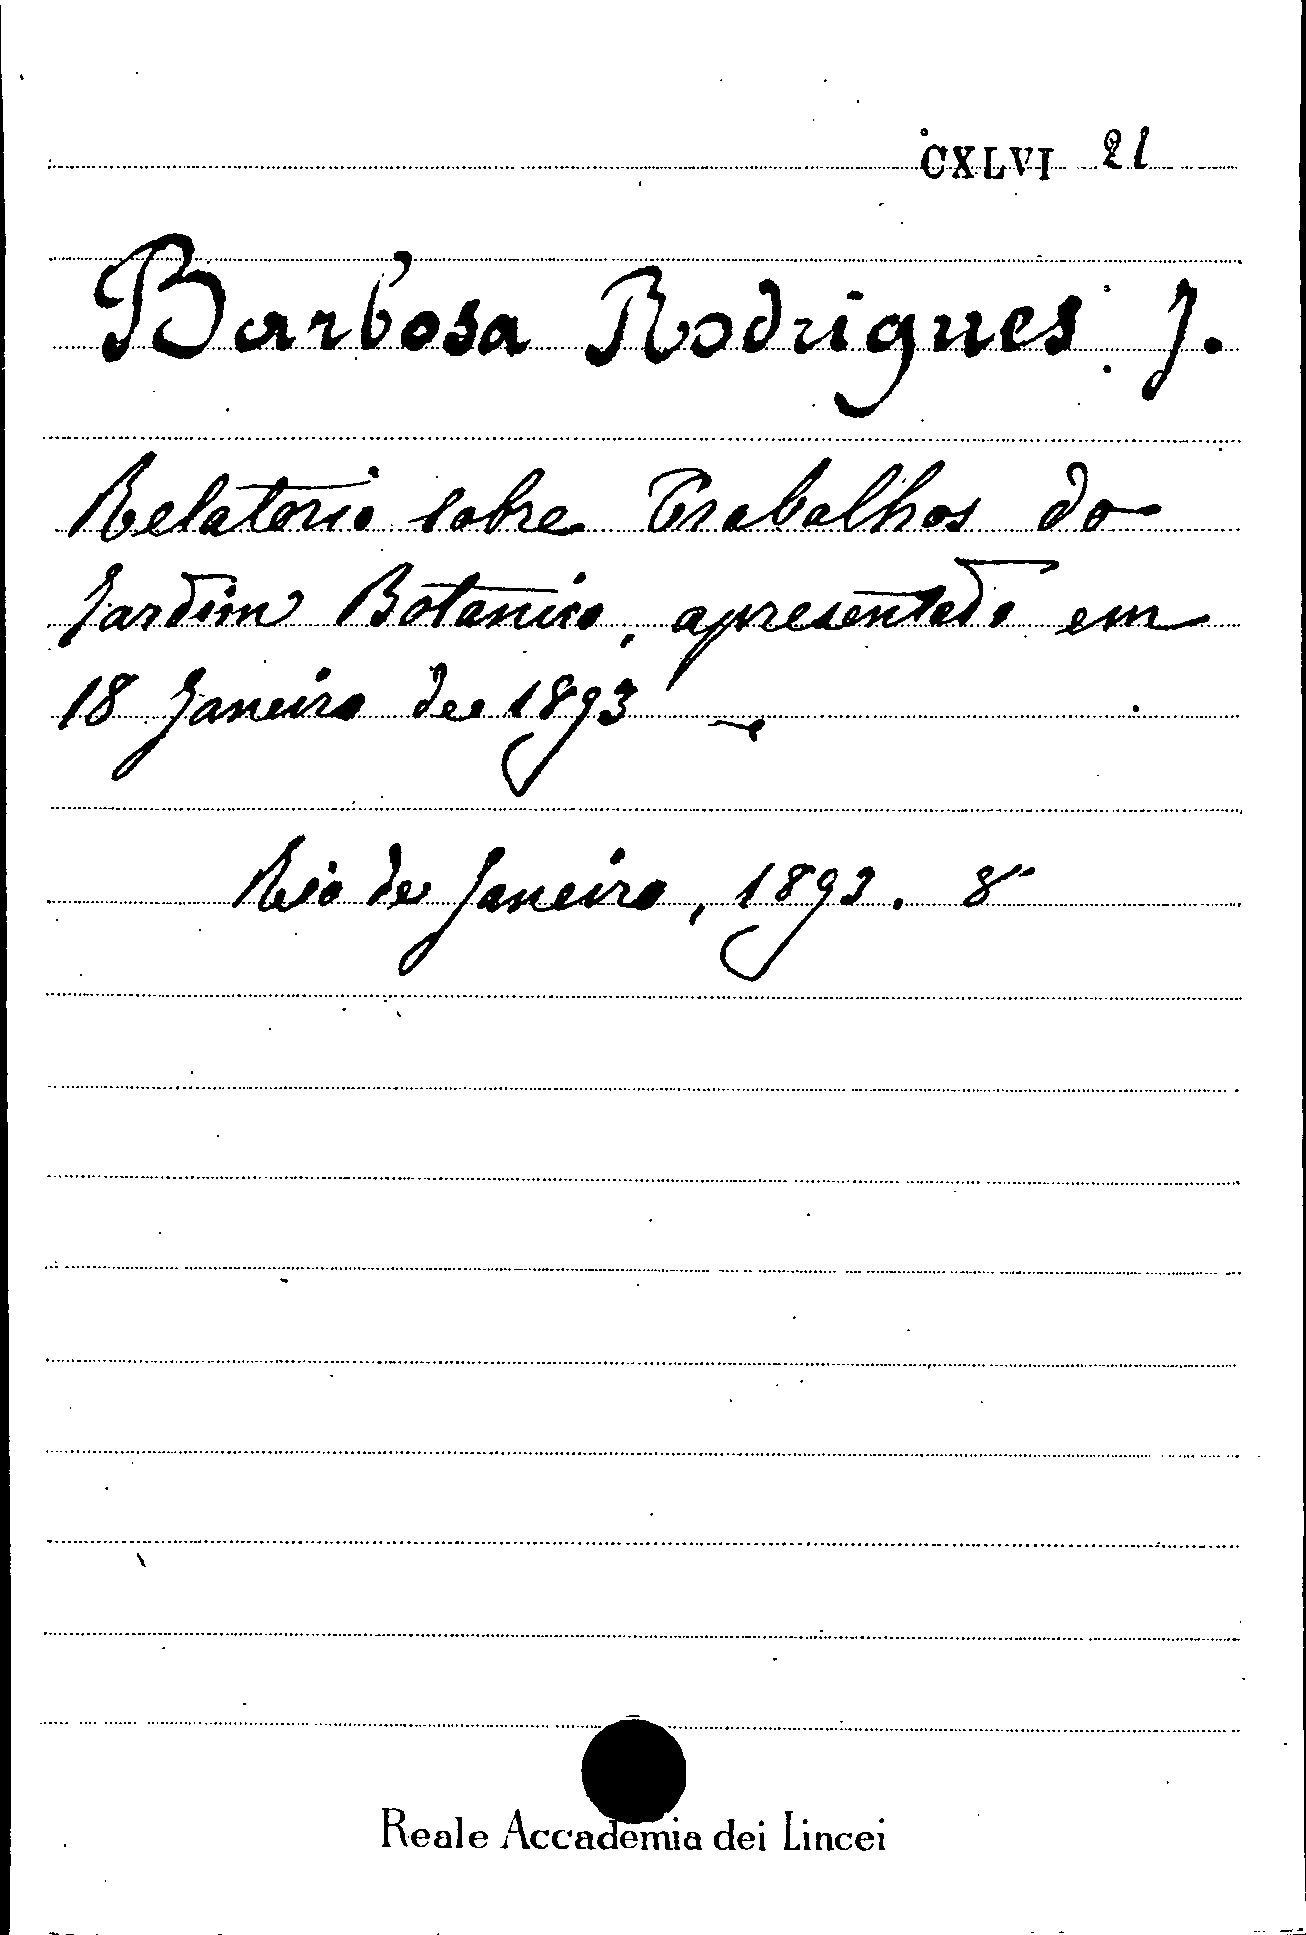 CXLVI 21
Barbosa Rodrigues J.
Relatorio sobre Trabalhos do
Jardim Botanico, apresentado em
18 Janeiro de 1893 —
Rio de Janeiro, 1893. 8°
Reale Accademia dei Lincei